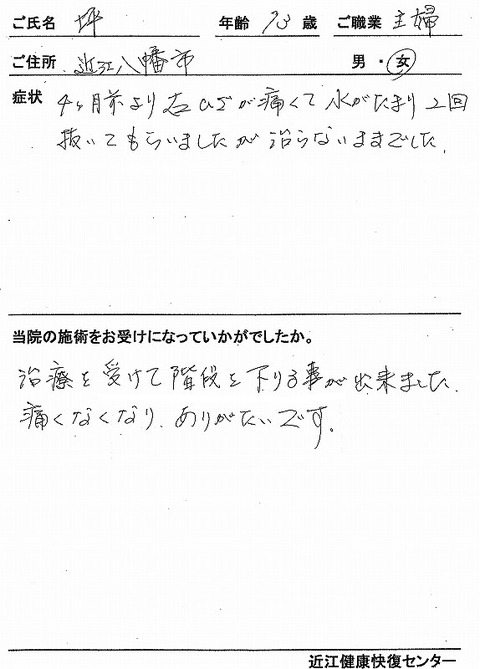 ご氏名 坪 年齢 73 歳 ご職業 主婦
ご住所 近江八幡市 男・女
症状 4ヶ月前より右ひざが痛くて水がたまり2回
抜いてもらいましたが治らないままでした.
当院の施術をお受けになっていかがでしたか。
治療を受けて階段を下りる事が出来ました.
痛くなくなり、ありがたいです。
近江健康快復センター